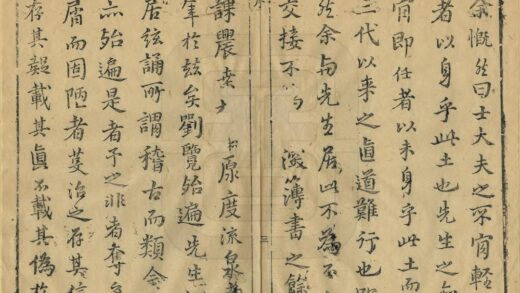 余慨然曰士大夫之不肯輕
者以身乎此土也先生之
肯即任者以未身乎此土而
三代以来之直道難行也
然余与先生居此不為不
交接不 簿書之餘
三
課農桑 原度流泉
於玆矣劉覽殆遍先生
居絃誦所謂稽古而類今
亦殆遍是者予之非者奪
屑而固陋者芟治之存其
存其韙載其眞不載其偽